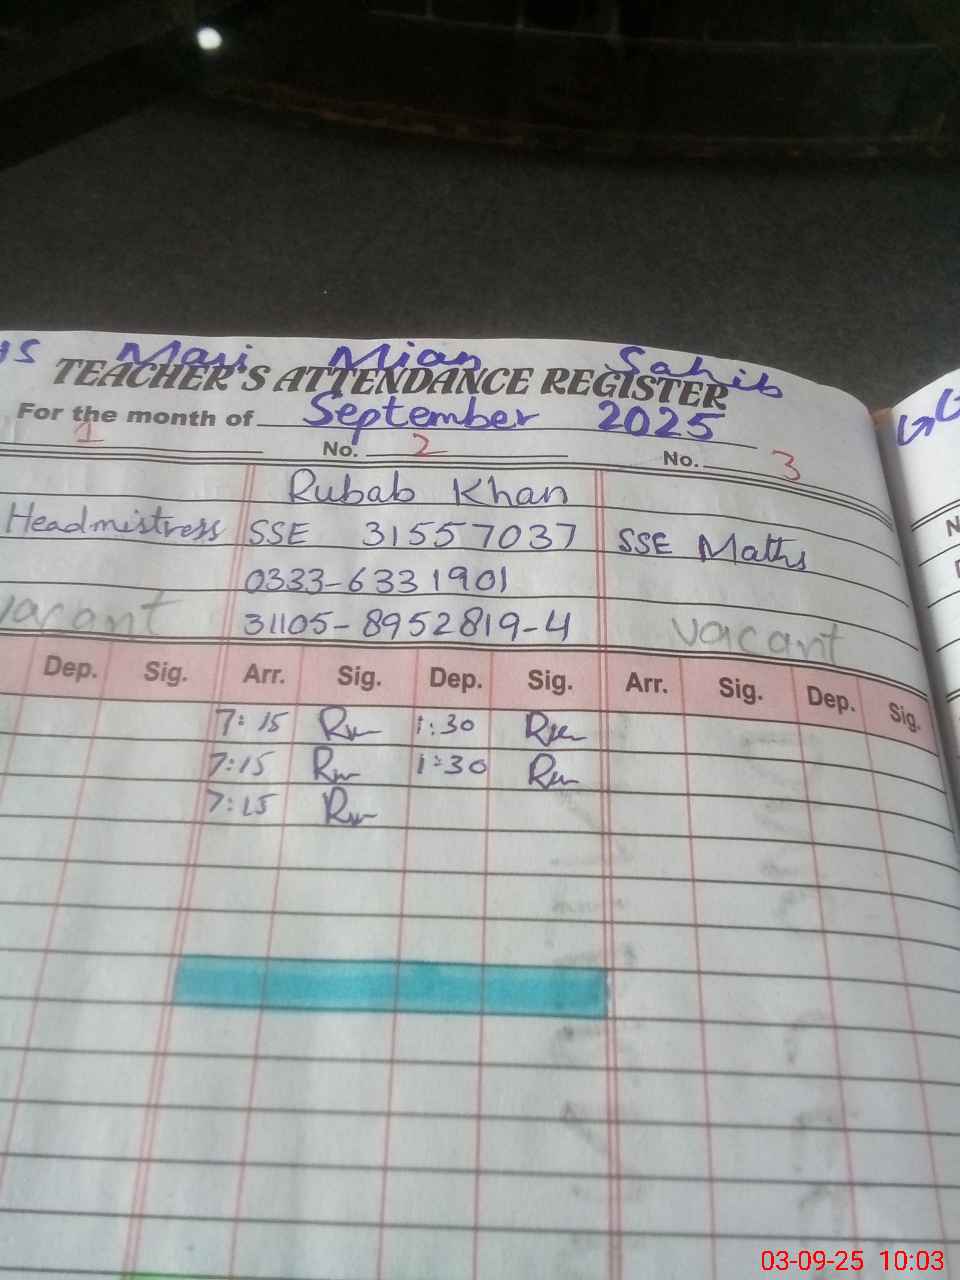 Mari Mian Sahib
TEACHER'S ATTENDANCE REGISTER
For the month of September 2025
1 No. 2 No. 3
Rubab Khan
Headmistress SSE 31557037 SSE Maths
0333-6331901
vacant 31105-8952819-4 vacant
Dep. Sig. Arr. Sig. Dep. Sig. Arr. Sig. Dep. Sig.
7:15 1:30
7:15 1:30
7:15
03-09-25 10:03